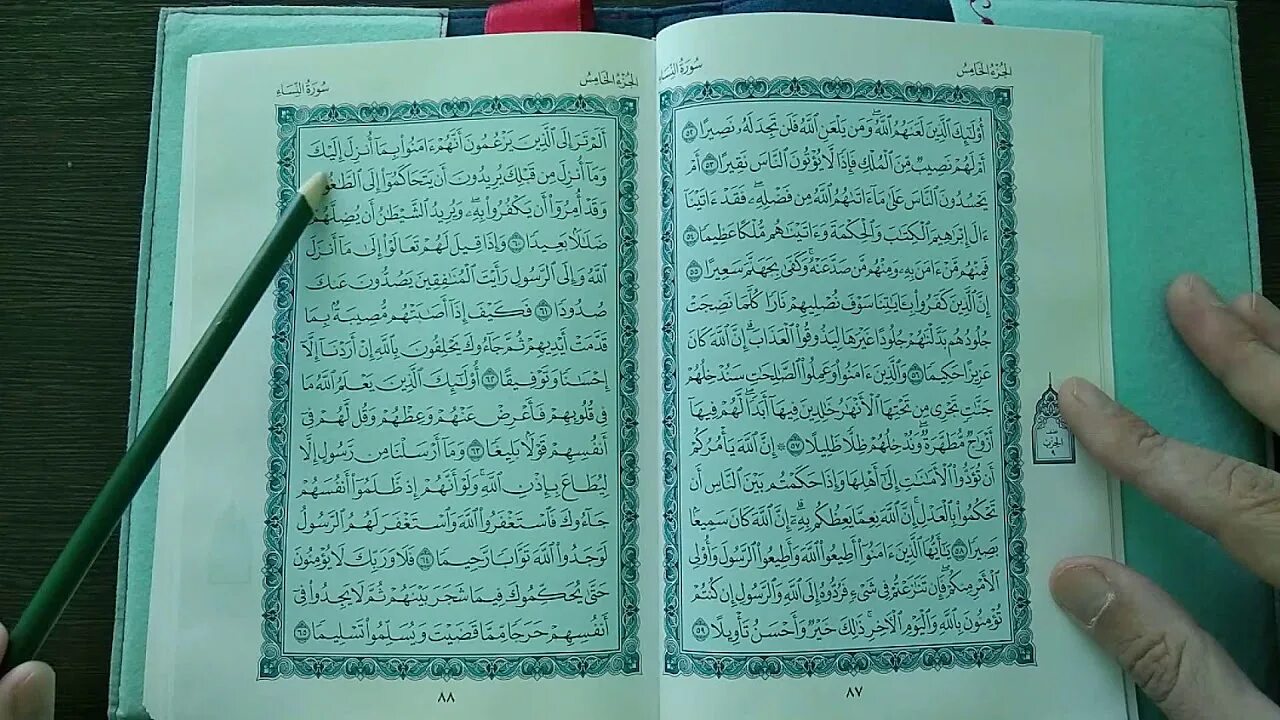 الجزء الخامس
سورة النساء
أُوْلَٰٓئِكَ ٱلَّذِينَ لَعَنَهُمُ ٱللَّهُۖ وَمَن يَلْعَنِ ٱللَّهُ فَلَن تَجِدَ لَهُۥ نَصِيرًا ٥٢
أَمْ لَهُمْ نَصِيبٌ مِّنَ ٱلْمُلْكِ فَإِذًا لَّا يُؤْتُونَ ٱلنَّاسَ نَقِيرًا ٥٣ أَمْ
يَحْسُدُونَ ٱلنَّاسَ عَلَىٰ مَآ ءَاتَىٰهُمُ ٱللَّهُ مِن فَضْلِهِۦۖ فَقَدْ ءَاتَيْنَآ
ءَالَ إِبْرَٰهِيمَ ٱلْكِتَٰبَ وَٱلْحِكْمَةَ وَءَاتَيْنَٰهُم مُّلْكًا عَظِيمًا ٥٤
فَمِنْهُم مَّنْ ءَامَنَ بِهِۦ وَمِنْهُم مَّن صَدَّ عَنْهُۚ وَكَفَىٰ بِجَهَنَّمَ سَعِيرًا ٥٥
إِنَّ ٱلَّذِينَ كَفَرُوا۟ بِـَٔايَٰتِنَا سَوْفَ نُصْلِيهِمْ نَارًا كُلَّمَا نَضِجَتْ
جُلُودُهُم بَدَّلْنَٰهُمْ جُلُودًا غَيْرَهَا لِيَذُوقُوا۟ ٱلْعَذَابَۗ إِنَّ ٱللَّهَ كَانَ
عَزِيزًا حَكِيمًا ٥٦ وَٱلَّذِينَ ءَامَنُوا۟ وَعَمِلُوا۟ ٱلصَّٰلِحَٰتِ سَنُدْخِلُهُمْ
جَنَّٰتٍ تَجْرِى مِن تَحْتِهَا ٱلْأَنْهَٰرُ خَٰلِدِينَ فِيهَآ أَبَدًاۖ لَّهُمْ فِيهَآ
أَزْوَٰجٌ مُّطَهَّرَةٌۖ وَنُدْخِلُهُمْ ظِلًّا ظَلِيلًا ٥٧ ۞ إِنَّ ٱللَّهَ يَأْمُرُكُمْ
أَن تُؤَدُّوا۟ ٱلْأَمَٰنَٰتِ إِلَىٰٓ أَهْلِهَا وَإِذَا حَكَمْتُم بَيْنَ ٱلنَّاسِ أَن
تَحْكُمُوا۟ بِٱلْعَدْلِۚ إِنَّ ٱللَّهَ نِعِمَّا يَعِظُكُم بِهِۦٓۗ إِنَّ ٱللَّهَ كَانَ سَمِيعًۢا
بَصِيرًا ٥٨ يَٰٓأَيُّهَا ٱلَّذِينَ ءَامَنُوٓا۟ أَطِيعُوا۟ ٱللَّهَ وَأَطِيعُوا۟ ٱلرَّسُولَ وَأُو۟لِى
ٱلْأَمْرِ مِنكُمْۖ فَإِن تَنَٰزَعْتُمْ فِى شَىْءٍ فَرُدُّوهُ إِلَى ٱللَّهِ وَٱلرَّسُولِ إِن كُنتُمْ
تُؤْمِنُونَ بِٱللَّهِ وَٱلْيَوْمِ ٱلْءَاخِرِۚ ذَٰلِكَ خَيْرٌ وَأَحْسَنُ تَأْوِيلًا ٥٩
٨٧
الحزب
٩
الجزء الخامس
سورة النساء
أَلَمْ تَرَ إِلَى ٱلَّذِينَ يَزْعُمُونَ أَنَّهُمْ ءَامَنُوا۟ بِمَآ أُنزِلَ إِلَيْكَ
وَمَآ أُنزِلَ مِن قَبْلِكَ يُرِيدُونَ أَن يَتَحَاكَمُوٓا۟ إِلَى
وَقَدْ أُمِرُوٓا۟ أَن يَكْفُرُوا۟ بِهِۦۖ وَيُرِيدُ ٱلشَّيْطَٰنُ أَن يُضِلَّهُمْ
ضَلَٰلًۢا بَعِيدًا ٦٠ وَإِذَا قِيلَ لَهُمْ تَعَالَوْا۟ إِلَىٰ مَآ أَنزَلَ
ٱللَّهُ وَإِلَى ٱلرَّسُولِ رَأَيْتَ ٱلْمُنَٰفِقِينَ يَصُدُّونَ عَنكَ
صُدُودًا ٦١ فَكَيْفَ إِذَآ أَصَٰبَتْهُم مُّصِيبَةٌۢ بِمَا
قَدَّمَتْ أَيْدِيهِمْ ثُمَّ جَآءُوكَ يَحْلِفُونَ بِٱللَّهِ إِنْ أَرَدْنَآ إِلَّآ
إِحْسَٰنًا وَتَوْفِيقًا ٦٢ أُو۟لَٰٓئِكَ ٱلَّذِينَ يَعْلَمُ ٱللَّهُ مَا
فِى قُلُوبِهِمْ فَأَعْرِضْ عَنْهُمْ وَعِظْهُمْ وَقُل لَّهُمْ فِىٓ
أَنفُسِهِمْ قَوْلًۢا بَلِيغًا ٦٣ وَمَآ أَرْسَلْنَا مِن رَّسُولٍ إِلَّا
لِيُطَاعَ بِإِذْنِ ٱللَّهِۚ وَلَوْ أَنَّهُمْ إِذ ظَّلَمُوٓا۟ أَنفُسَهُمْ
جَآءُوكَ فَٱسْتَغْفَرُوا۟ ٱللَّهَ وَٱسْتَغْفَرَ لَهُمُ ٱلرَّسُولُ
لَوَجَدُوا۟ ٱللَّهَ تَوَّابًا رَّحِيمًا ٦٤ فَلَا وَرَبِّكَ لَا يُؤْمِنُونَ
حَتَّىٰ يُحَكِّمُوكَ فِيمَا شَجَرَ بَيْنَهُمْ ثُمَّ لَا يَجِدُوا۟ فِىٓ
أَنفُسِهِمْ حَرَجًا مِّمَّا قَضَيْتَ وَيُسَلِّمُوا۟ تَسْلِيمًا ٦٥
٨٨